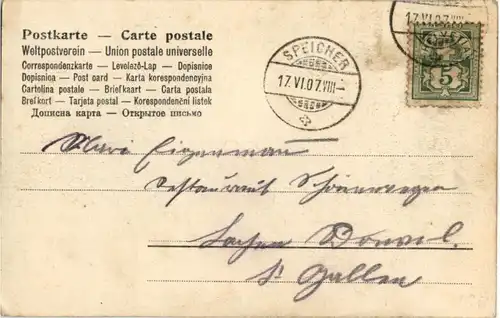 Postkarte — Carte postale
Weltpostverein — Union postale universelle
Correspondenzkarte — Levelező-Lap — Dopisnice
Dopisnica — Post card — Karta korespondencyjna
Cartolina postale — Briefkaart — Carta postala
Brefkort — Tarjeta postal — Korespondenční lístek
Дописна карта — Открытое письмо
SPEICHER
17.VI.07.VIII—
17.VI.07.VIII
5
Eigenmann
Restaurant
Lachen
St Gallen